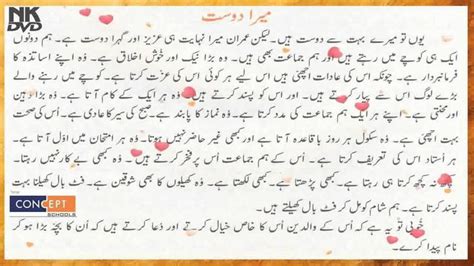 NK
DVD
میرا دوست
یوں تو میرے بہت سے دوست ہیں۔ لیکن عمران میرا نہایت ہی عزیز اور گہرا دوست ہے۔ ہم دونوں
ایک ہی کوچے میں رہتے ہیں اور ہم جماعت بھی ہیں۔ وہ بڑا نیک اور خوش اخلاق ہے۔ وہ اپنے اساتذہ کا
فرمانبردار ہے۔ چونکہ اس کی عادات اچھی ہیں اس لیے ہر کوئی اس کی عزت کرتا ہے۔ کوچے میں رہنے والے
بڑے لوگ اس سے پیار کرتے ہیں۔ اور اس کو پسند کرتے ہیں۔ وہ ہر ایک کے کام آتا ہے۔ وہ بڑا
محنتی ہے۔ اپنے ہر ایک ہم جماعت کی مدد کرتا ہے۔ وہ نماز کا پابند ہے۔ صبح کی سیر کا عادی ہے۔ اس کی صحت
بہت اچھی ہے۔ وہ سکول ہر روز باقاعدہ آتا ہے اور کبھی غیر حاضر نہیں ہوتا۔ وہ ہر امتحان میں اول آتا ہے۔
ہر استاد اس کی تعریف کرتا ہے۔ اس کے ہم جماعت اس پر فخر کرتے ہیں۔ وہ کبھی بے کار نہیں رہتا۔
کچھ نہ کچھ کرتا ہی رہتا ہے۔ کبھی پڑھتا ہے۔ کبھی لکھتا ہے۔ وہ کھیلوں کا بھی شوقین ہے۔ فٹ بال کھیلنا بہت
پسند کرتا ہے۔ ہم شام کو مل کر فٹ بال کھیلتے ہیں۔
خوبی تو یہ ہے کہ اس کے والدین اس کا خاص خیال کرتے اور دعا کرتے ہیں کہ ان کا بچہ بڑا ہو کر
نام پیدا کرے۔
CONCEPT
SCHOOLS